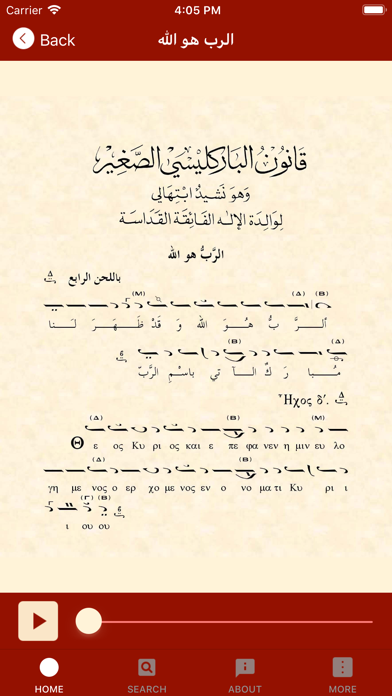 Carrier 4:05 PM
Back الرب هو الله
قَانُونُ البَارَكْلِيسِي الصَّغِيْر
وَهوَ نَشيدٌ ابْتِهَالِي
لِوَالِدَة الإلـه الفَائِقَة القَدَاسَة
الرَّبُّ هو الله
باللحن الرابع
(M) (Δ) (B)
اَلـرَّ بُّ هُـوَ الله وَ قَدْ ظَـهَـرَ لَـنا
(B) (Δ)
مُـبـا رَ كٌ الـآ تي باسْمِ الرَّبّ
Ἦχος δ΄.
(Δ) (B) (M)
Θε ος Κυ ρι ος και ε πε φα νεν η μιν ευ λο
(Δ) (B)
γη με νος ο ερ χο με νος εν ο νο μα τι Κυ ρι ι
(Γ) (B)
ι ου ου
HOME SEARCH ABOUT MORE